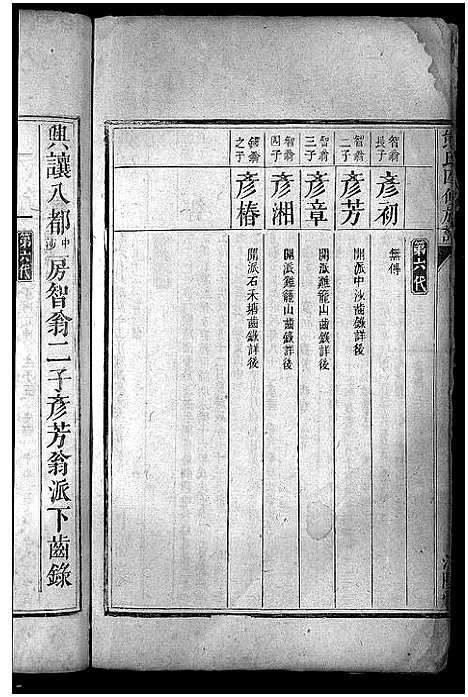 第六代
智翁長子
彥初
無傳
智翁二子
彥芳
開派中沙齒錄詳後
智翁三子
彥章
開派雞籠山齒錄詳後
智翁四子
彥湘
開派雞籠山齒錄詳後
之子
彥椿
開派石禾塘齒錄詳後
第六代
興讓八都中沙房智翁二子彥芳翁派下齒錄